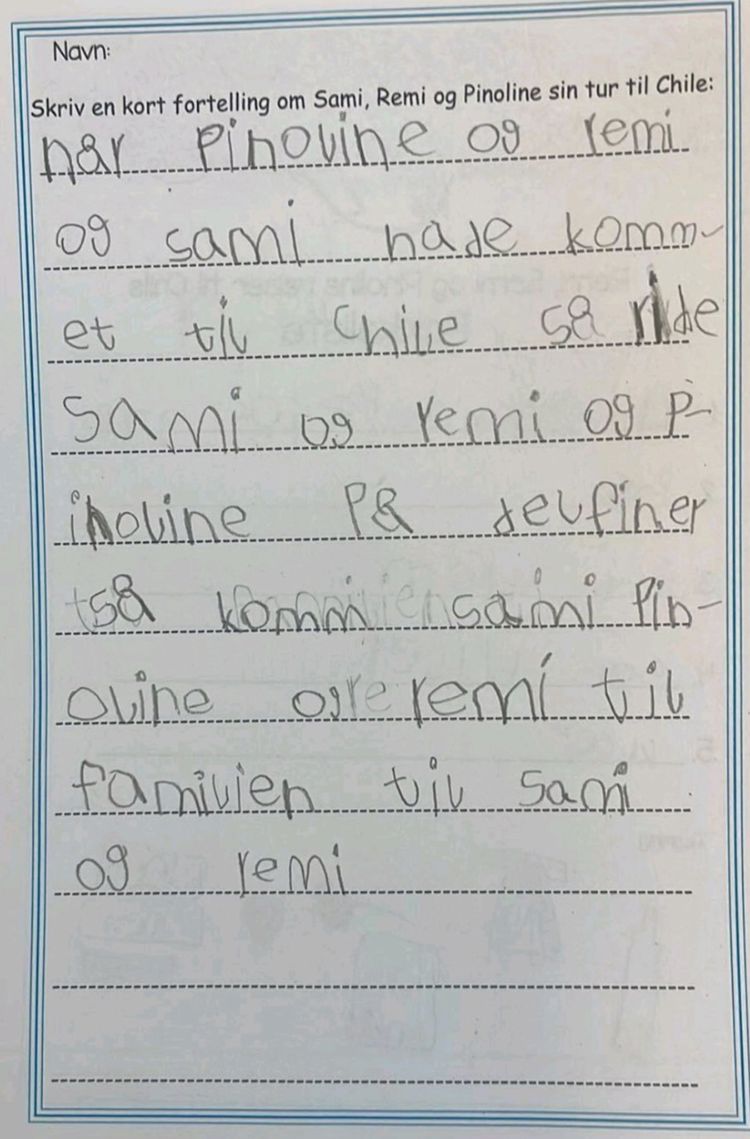 Navn:
Skriv en kort fortelling om Sami, Remi og Pinoline sin tur til Chile:
når Pinoline og remi
og sami hade komm-
et til Chile så ride
Sami og remi og P-
inoline På delfiner
så komm sami Pin-
oline og remi til
familien til Sami
og remi